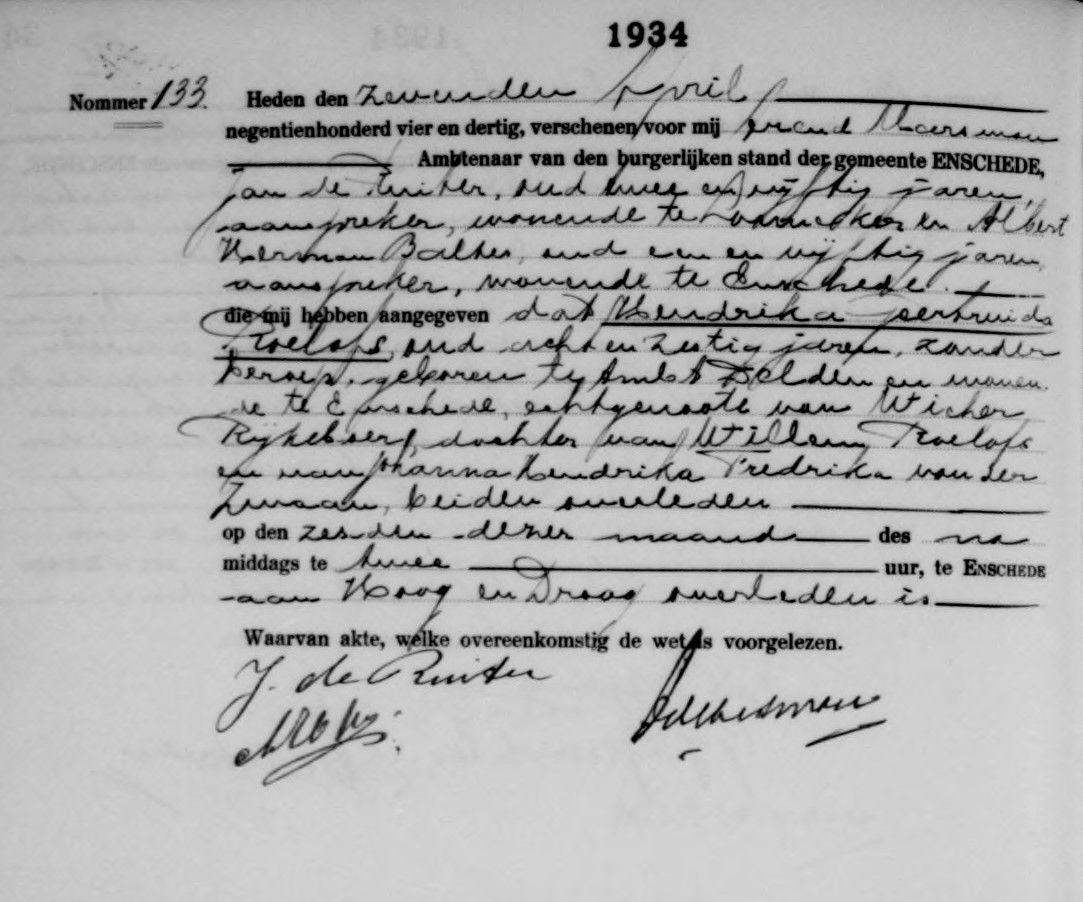 1934
Nommer 133. Heden den zevenden April
negentienhonderd vier en dertig, verschenen voor mij Moersman
Ambtenaar van den burgerlijken stand der gemeente ENSCHEDE,
Jan de Ruiter, oud twee en vijftig jaren,
aanspreker, wonende te Lonneker en Albert
Herman Baltes, oud een en vijftig jaren,
aanspreker, wonende te Enschede.
die mij hebben aangegeven dat Hendrika Geertruida
Roelofs, oud acht en zestig jaren, zonder
beroep, geboren te Ambt Delden en wonen
de te Enschede, echtgenoote van Wicher
Rijkeboer, dochter van Willem Roelofs
en van Johanna Hendrika Fredrika van der
Zwaan, beiden overleden
op den zesden dezer maand des na
middags te twee uur, te ENSCHEDE
aan Hoog en Droog overleden is
Waarvan akte, welke overeenkomstig de wet is voorgelezen.
J. de Ruiter